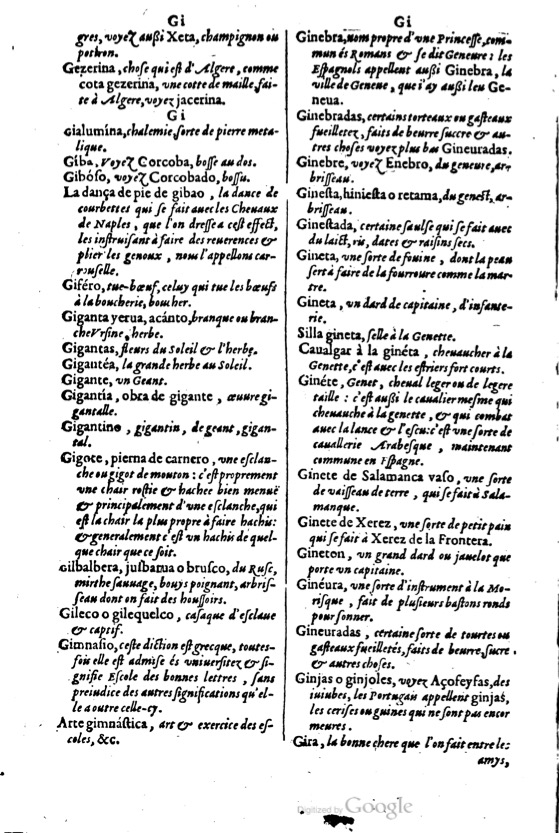 Gi
gres, voyez außi Xeta, champignon ou
potiron.
Gezerina, chose qui est d'Algere, comme
cota gezerina, vne cotte de maille, fai-
te à Algere, voyez jacerina.
Gi
Gialumína, chalemie, sorte de pierre meta-
lique.
Gíba, Voyez Corcoba, bosse au dos.
Gibóso, voyez Corcobado, bossu.
La dança de pie de gibao, la dance de
courbettes qui se fait auec les Cheuaux
de Naples, que l'on dresse a cest effect,
les instruisant à faire des reuerences &
plier les genoux, nous l'appellons car-
rouselle.
Giféro, tue-bœuf, celuy qui tue les bœufs
à la boucherie, boucher.
Giganta yerua, acánto, branque ou bran-
che Vrsine, herbe.
Gigantas, fleurs du Soleil & l'herbe.
Gigantéa, la grande herbe au Soleil.
Gigante, vn Geant.
Gigantía, obra de gigante, œuure gi-
gantalle.
Gigantino, gigantin, de geant, gigan-
tal.
Gigote, pierna de carnero, vne esclan-
che ou gigot de mouton : c'est proprement
vne chair rostie & hachee bien menuë
& principalement d'vne esclanche, qui
est la chair la plus propre à faire hachis:
& generalement c'est vn hachis de quel-
que chair que ce soit.
Gilbalbera, jusbarua o brusco, du Rusc,
mirthe sauuage, bouys poignant, arbris-
seau dont on fait des houssoirs.
Gileco o gilequelco, casaque d'esclaue
& captif.
Gimnasio, ceste diction est grecque, toutes-
fois elle est admise és vniuersitez & si-
gnifie Escole des bonnes lettres, sans
preiudice des autres significations qu'el-
le a outre celle-cy.
Arte gimnástica, art & exercice des es-
coles, &c.
Gi
Ginebra, nom propre d'vne Princesse, com-
mun és Romans & se dit Geneure : les
Espagnols appellent außi Ginebra, la
ville de Geneue, que i'ay außi leu Ge-
neua.
Ginebradas, certains torteaux ou gasteaux
fueilletez, faits de beurre succre & au-
tres choses voyez plus bas Gineuradas.
Ginebre, voyez Enebro, du geneure, ar-
brisseau.
Ginesta, hiniesta o retama, du genest, ar-
brisseau.
Ginestada, certaine saulse qui se fait auec
du laict, ris, dates & raisins secs.
Gineta, vne sorte de fouine, dont la peau
sert à faire de la fourroure comme la mar-
tre.
Gineta, vn dard de capitaine, d'infante-
rie.
Silla gineta, selle à la Genette.
Caualgar à la ginéta, cheuaucher à la
Genette, c'est auec les estriers fort courts.
Ginéte, Genet, cheual leger ou de legere
taille : c'est außi le caualier mesme qui
cheuauche à la genette, & qui combat
auec la lance & l'escu: c'est vne sorte de
cauallerie Arabesque, maintenant
commune en Espagne.
Ginete de Salamanca vaso, vne sorte
de vaisseau de terre, qui se fait à Sala-
manque.
Ginete de Xerez, vne sorte de petit pain
qui se fait à Xerez de la Frontera.
Gineton, vn grand dard ou jauelot que
porte vn capitaine.
Ginéura, vne sorte d'instrument à la Mo-
risque, fait de plusieurs bastons ronds
pour sonner.
Gineuradas, certaine sorte de tourtes ou
gasteaux fueilletés, faits de beurre, sucre
& autres choses.
Ginjas o ginjoles, voyez Açofeyfas, des
iuiubes, les Portugais appellent ginjas,
les cerises ou guines qui ne sont pas encor
meures.
Gira, la bonne chere que l'on fait entre les
amys,
Digitized by Google